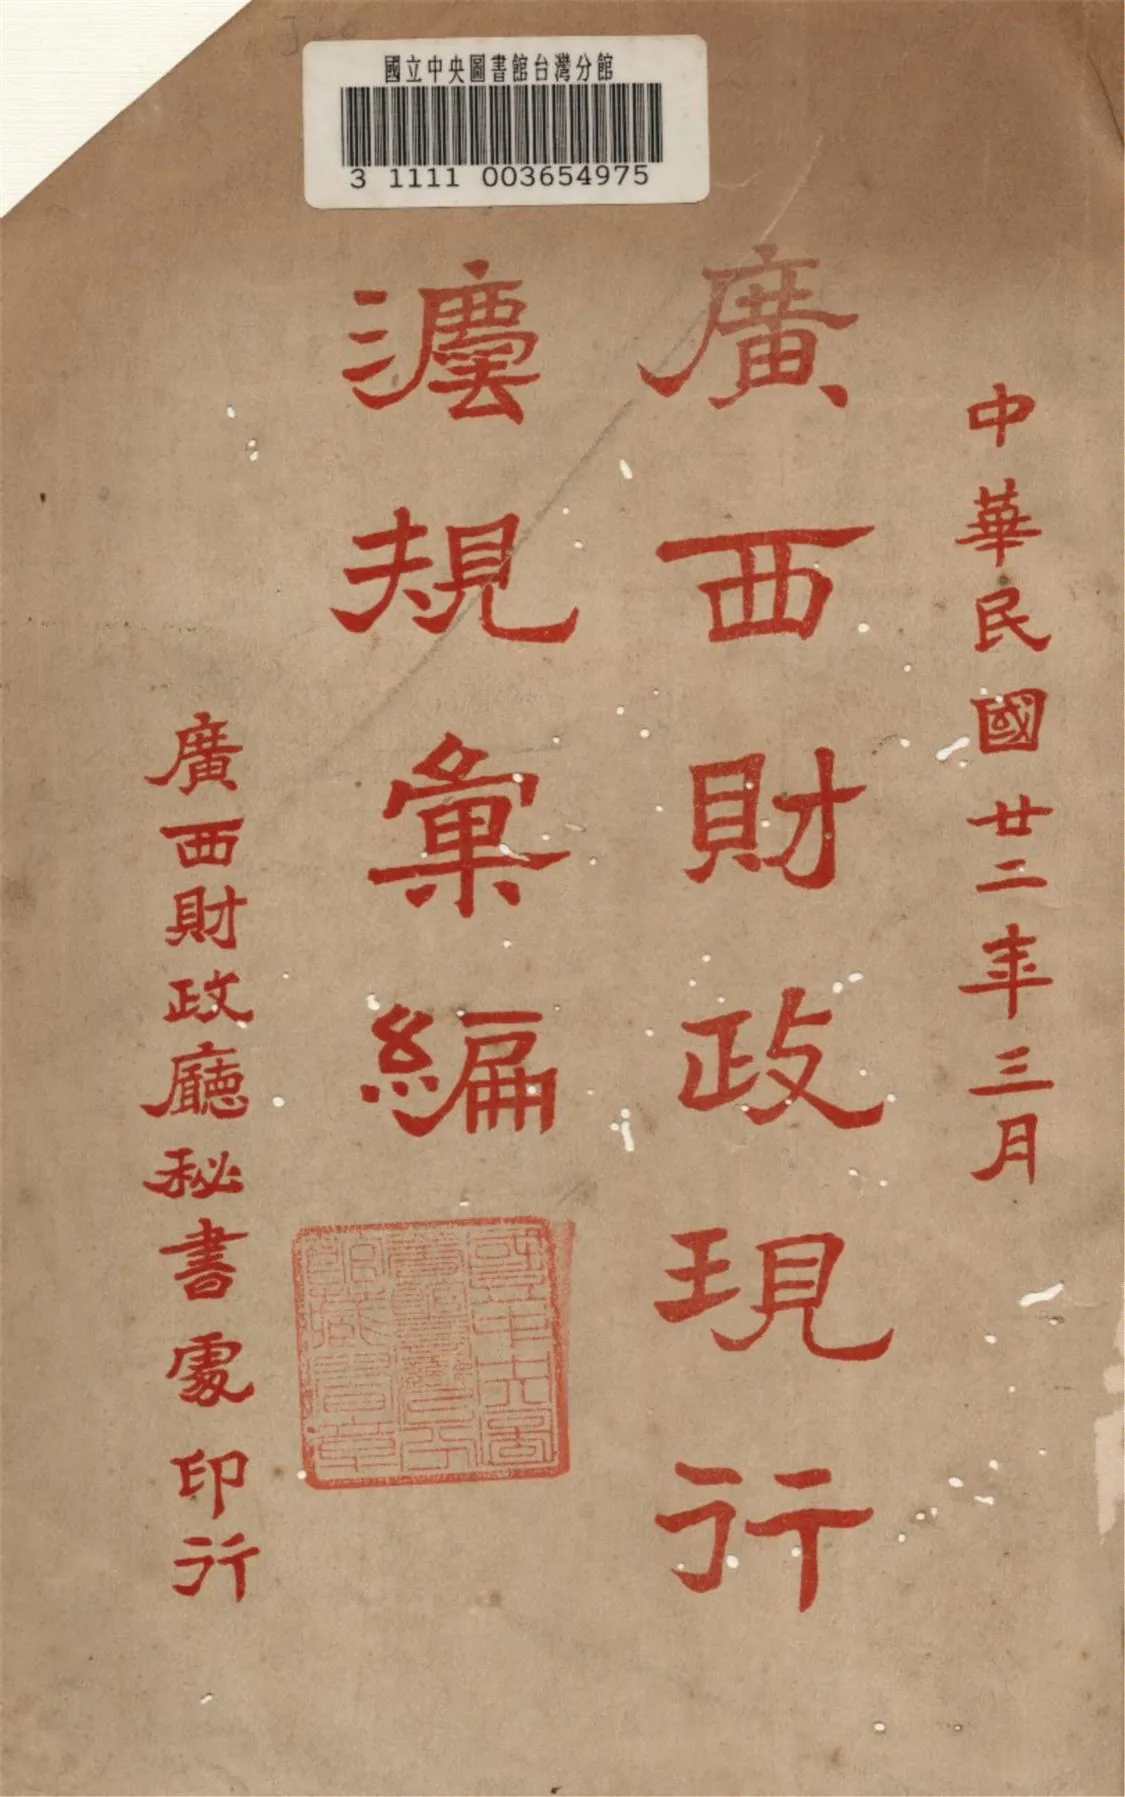 國立中央圖書館台灣分館
3 1111 003654975
中華民國廿二年三月
廣西財政現行
灋規彙編
廣西財政廳秘書處印行